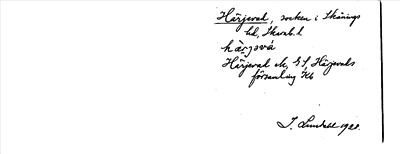 Härjevad, socken i Skånings
hd, Skarab. l.
härjsvá
Härjevad sn, GS, Härjevads
församling Kb
J. Lundahl 1920.